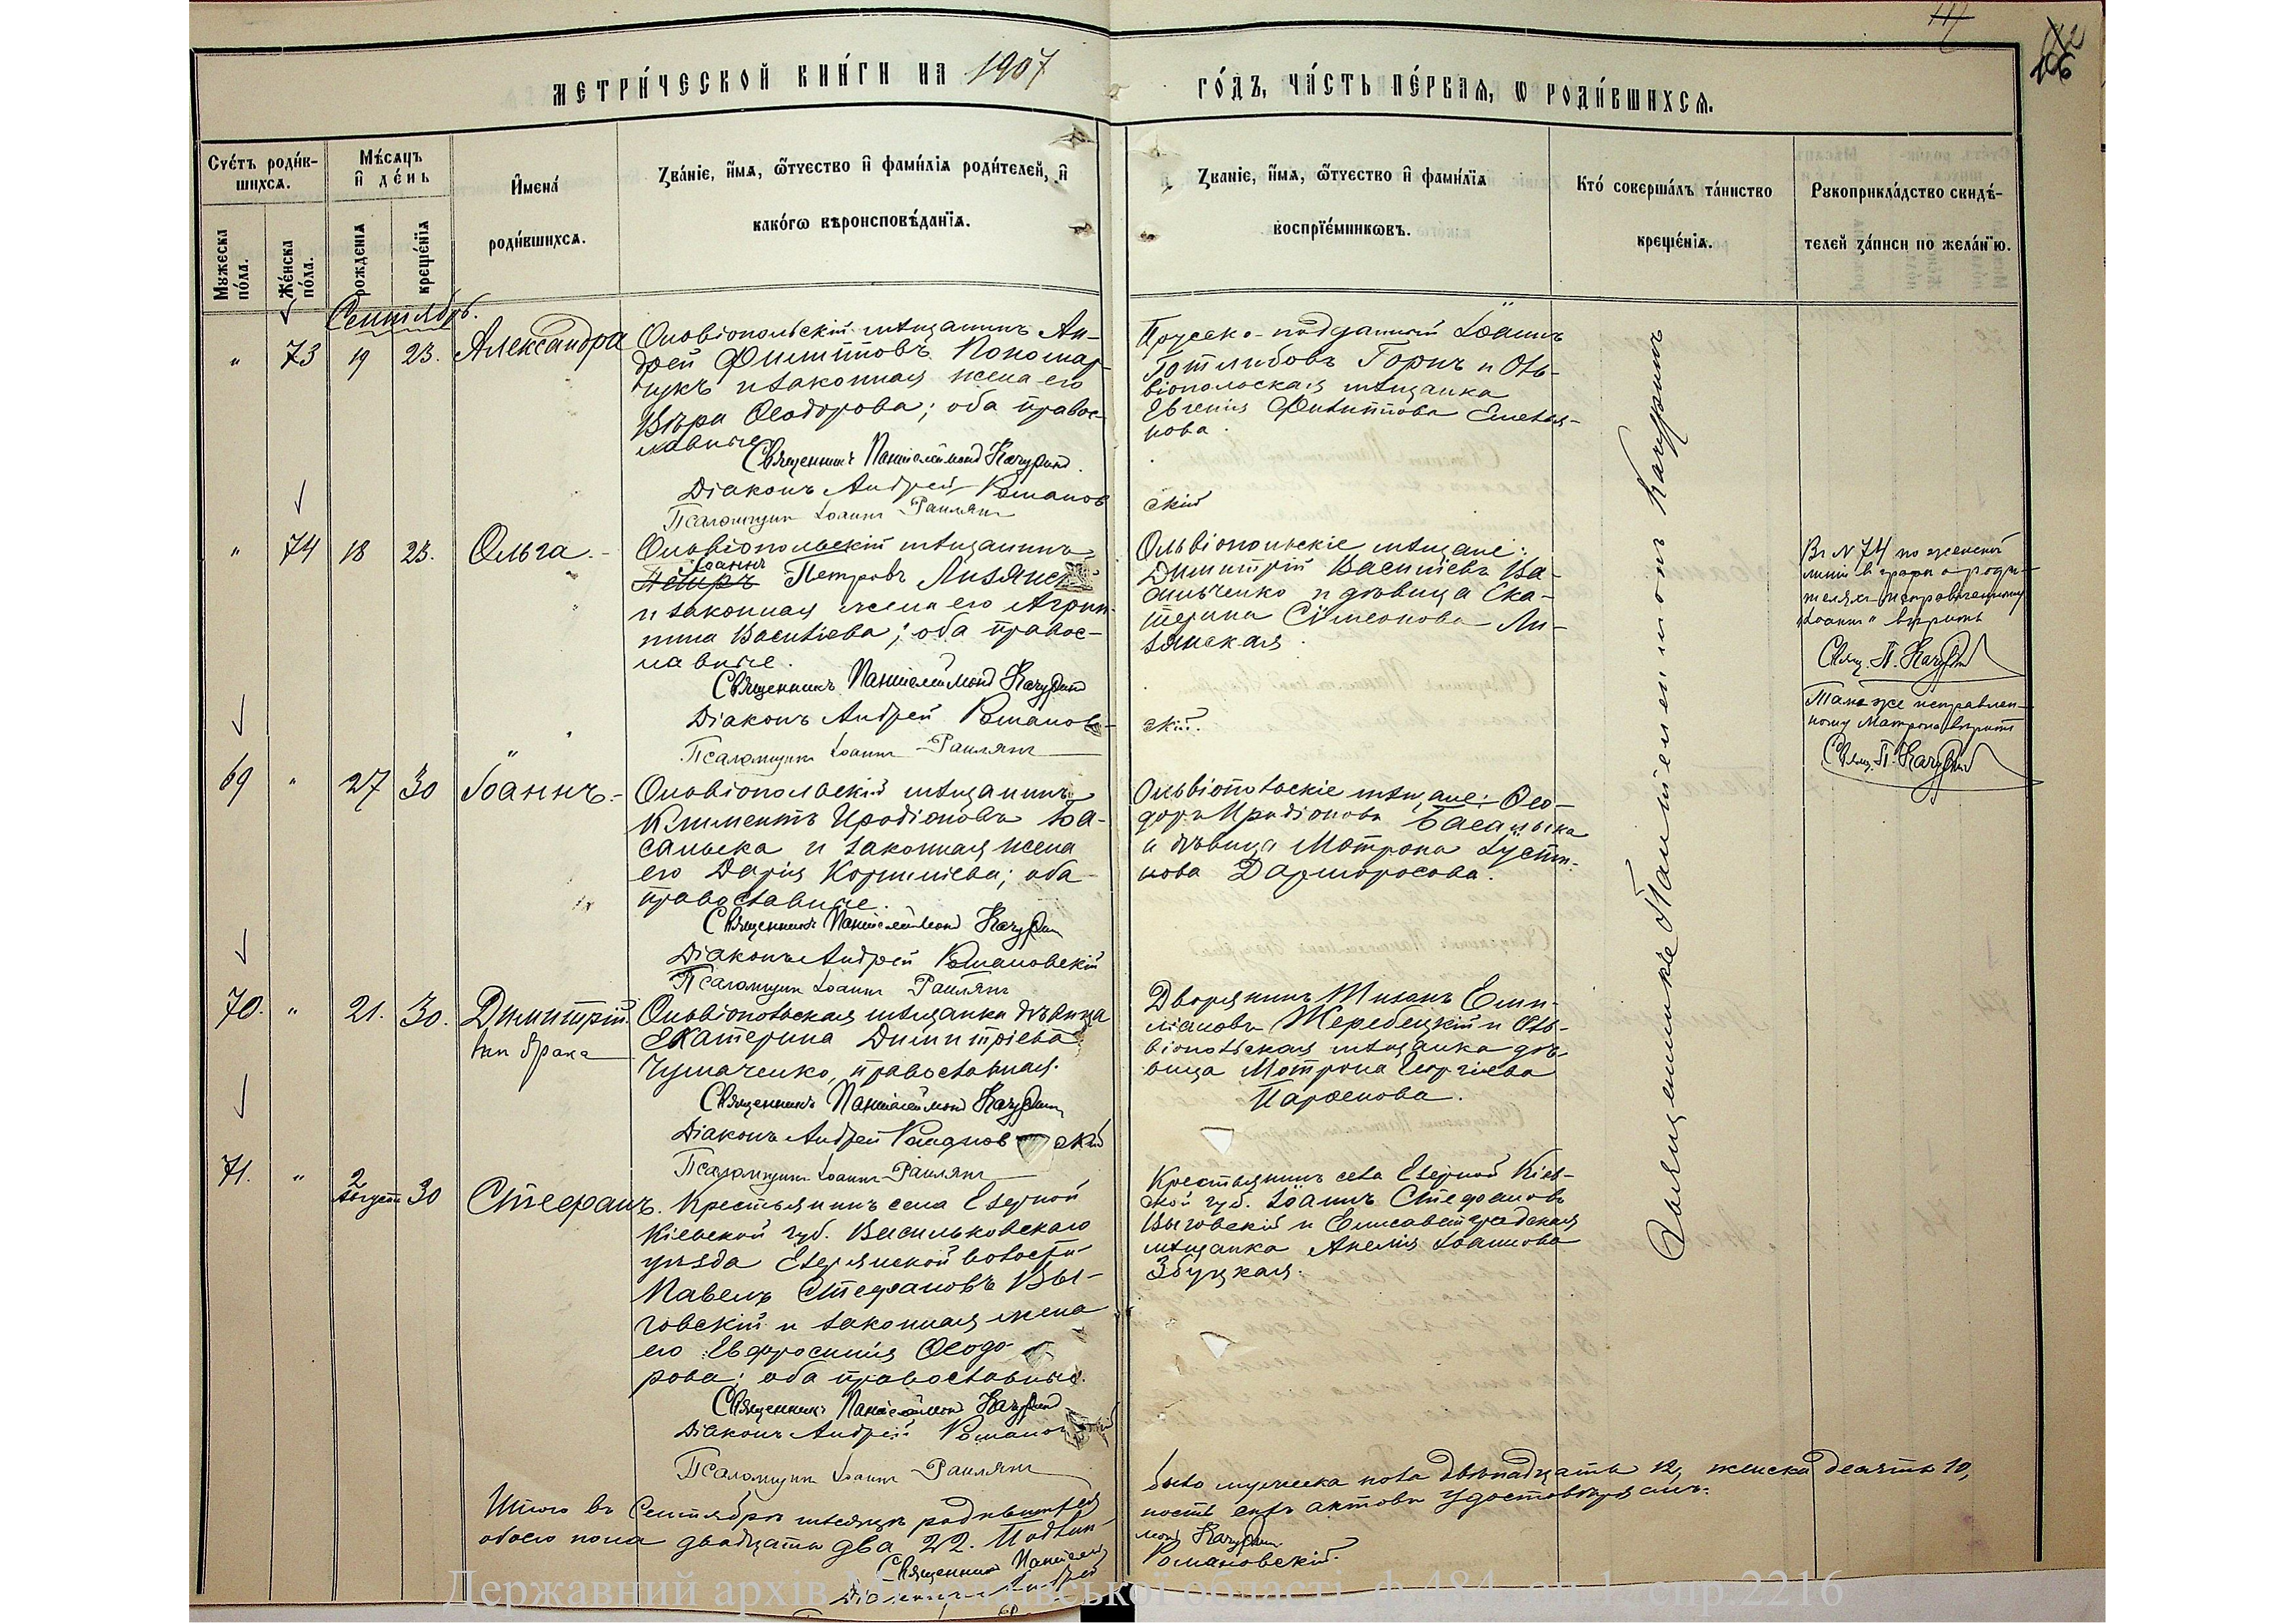 метри́ческой кни́ги на 1907
го́дъ, ча́сть пе́рвая, ѡ роди́вшихсѧ.
Сче́тъ роди́в-
шихсѧ.
Мужеска по́ла.
Же́нска по́ла.
Мѣ́сѧцъ и҆ де́нь
рожденїѧ
креще́нїѧ
И҆мена́
роди́вшихсѧ.
Зва́нїе, и҆́мѧ, ѻ҆́тчество и҆ фами́лїѧ роди́телей, и҆
како́гѡ вѣроисповѣ́данїѧ.
Зва́нїе, и҆́мѧ, ѻ҆́тчество и҆ фами́лїѧ
воспрїе́мникѡвъ.
Кто́ соверша́лъ та́инство
креще́нїѧ.
Рукоприкла́дство свидѣ́-
телей за́писи по жела́нїю.
Сентябрь.
" 73 19 23. Александра
Ольвіопольскій мѣщанинъ Ан-
дрей Филипповъ Пономар-
чукъ и законная жена его
Вѣра Ѳеодорова; оба правос-
лавные
Священникъ Пантелеимонъ Качуринъ.
Діаконъ Андрей Романов
Псаломщик Іоаннъ
Прусско-подданный Іоаннъ
Готлибовъ Горнъ и Оль-
віопольская мѣщанка
Евгенія Филиппова Емелья-
нова.
скій
" 74 18 23. Ольга.
Ольвіопольскій мѣщанинъ
Іоаннъ
Петръ Петровъ
и законная жена его Агрип-
пина Васильева; оба правос-
лавные.
Священникъ Пантелеимонъ Качуринъ
Діаконъ Андрей Романов-
Псаломщик Іоаннъ
Ольвіопольскіе мѣщане:
Димитрій Васильевъ Ва-
сильченко и дѣвица Ека-
терина Симеонова Ли-
зянская.
скій.
Въ № 74 по женской
линіи в графѣ о роди-
телях исправленному
"Іоаннъ" вѣрить
Свящ. П. Качуринъ
Тамъ же исправлен-
ному Матрона вѣрить
Свящ. П. Качуринъ
69 " 27 30 Іоаннъ.
Ольвіопольскій мѣщанинъ
Климентъ Иродіоновъ Ба-
салыка и законная жена
его Дарія Корнильева; оба
православные.
Священникъ Пантелеимонъ Качуринъ
Діаконъ Андрей Романовскій
Псаломщик Іоаннъ
Ольвіопольскіе мѣщане: Ѳео-
доръ Иродіоновъ Басалыка
и дѣвица Мотрона Іусти-
нова
70. " 21. 30. Димитрій.
внѣ брака
Ольвіопольская мѣщанка дѣвица
Екатерина Димитріева
Чумаченко, православная.
Священникъ Пантелеимонъ Качуринъ
Діаконъ Андрей Романов скій
Псаломщик Іоаннъ
Дворянинъ Емили-
ановъ Жеребецкій и Оль-
віопольская мѣщанка дѣ-
вица Мотрона Георгіева
Парѳенова.
71. " 2 Августа 30 Стефанъ.
Крестьянинъ села Езерной
Кіевской губ. Васильковскаго
уѣзда Езерянской волости
Павелъ Стефановъ Вы-
говскій и законная жена
его Евфросинія Ѳеодо-
рова; оба православные.
Священникъ Пантелеимонъ Качуринъ
Діаконъ Андрей Романов
Псаломщик Іоаннъ
Крестьянинъ села Езерной Кіев-
ской губ. Іоаннъ Стефановъ
Выговскій и Елисаветградская
мѣщанка Анелія Іоаннова
Збуцкая.
Священникъ Пантелеимонъ Качуринъ
Итого въ Сентябрѣ мѣсяцѣ родившихся
было мужеска пола двѣнадцать 12, женска десять 10,
обоего пола двадцать два 22. Подлин-
ность сихъ актовъ удостовѣряемъ:
Священникъ Пантелеи
монъ Качуринъ
Діаконъ Андрей
Романовскій.
Державний архів Миколаївської області, ф.484, оп.1, спр.2216